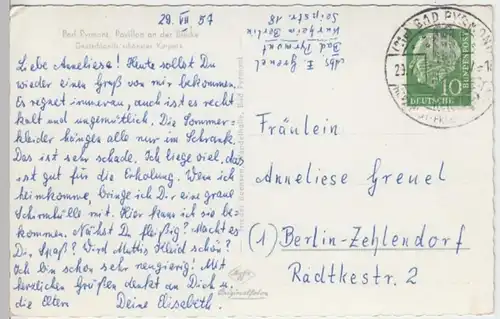 29. VII 57
Bad Pyrmont, Pavillon an der
Liebe Anneliese! Heute sollst Du
wieder einen Gruß von mir bekommen.
Es regnet immerzu, auch ist es recht
kalt und ungemütlich. Die Sommer-
kleider hängen alle nur im Schrank.
Das ist sehr schade. Ich liege viel, das
ist gut für die Erholung. Wenn ich
heimkomme, bringe ich Dir eine graue
mit. Hier kann ich sie be-
kommen. Nähst Du fleißig? Macht es
Dir Spaß? Wird Muttis Kleid schön?
Ich bin schon sehr neugierig! Mit
herzlichen Grüßen denkt an Dich u.
die Eltern Deine Elisabeth.
Abs. E. Greuel
Bad Pyrmont
Kurheim Berlin
18
BAD PYRMONT
29.
DEUTSCHE BUNDESPOST
10
Fräulein
Anneliese Greuel
(1) Berlin-Zehlendorf
Radtkestr. 2
Originalfoto